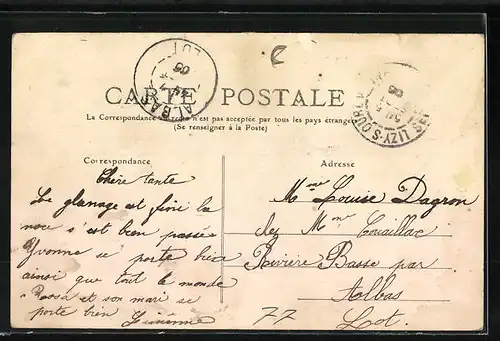 CARTE POSTALE
La Correspondance au recto n'est pas acceptée par tous les pays étrangers
(Se renseigner à la Poste)
Correspondance
Adresse
ALBAS
LOT
05
LIZY-S-OURCQ
Chère tante
Le glanage est fini la
s'est bien passée
Yvonne se porte bien
ainsi que tout le monde
et son mari se
porte bien
Mme Louise Dagron
chez Mme Couaillac
Rivière Basse par
Albas
Lot.
77